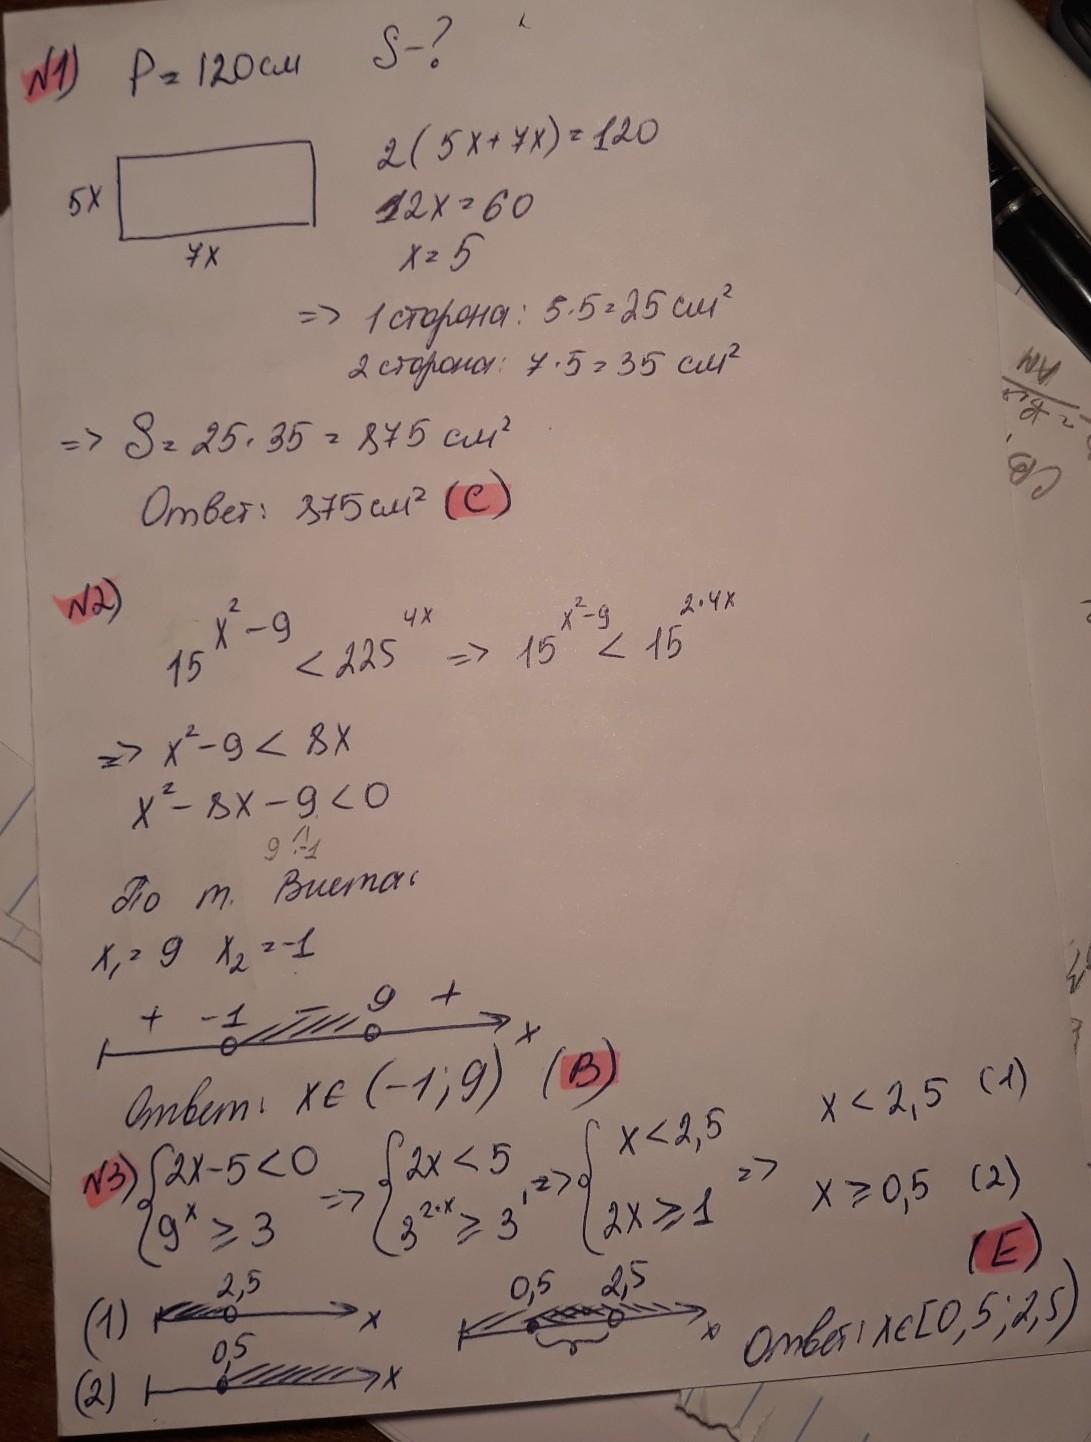 N1) P = 120см S-?
2(5x+7x)=120
5x
12x=60
7x
x=5
=> 1 сторона: 5·5=25 см²
2 сторона: 7·5=35 см²
=> S=25·35=875 см²
Ответ: 875см² (C)
N2)
15^(x²-9) < 225^(4x) => 15^(x²-9) < 15^(2·4x)
=> x²-9 < 8x
x²-8x-9<0
9 -1
По т. Виета:
x₁=9 x₂=-1
+ -1 - 9 + x
Ответ: x∈(-1;9) (B)
N3) {2x-5<0 => {2x<5 => {x<2,5 => x<2,5 (1)
{9^x ≥ 3 {3^(2·x) ≥ 3¹ {2x≥1 x≥0,5 (2)
(E)
(1) 2,5 x 0,5 2,5 x Ответ: x∈[0,5;2,5)
(2) 0,5 x